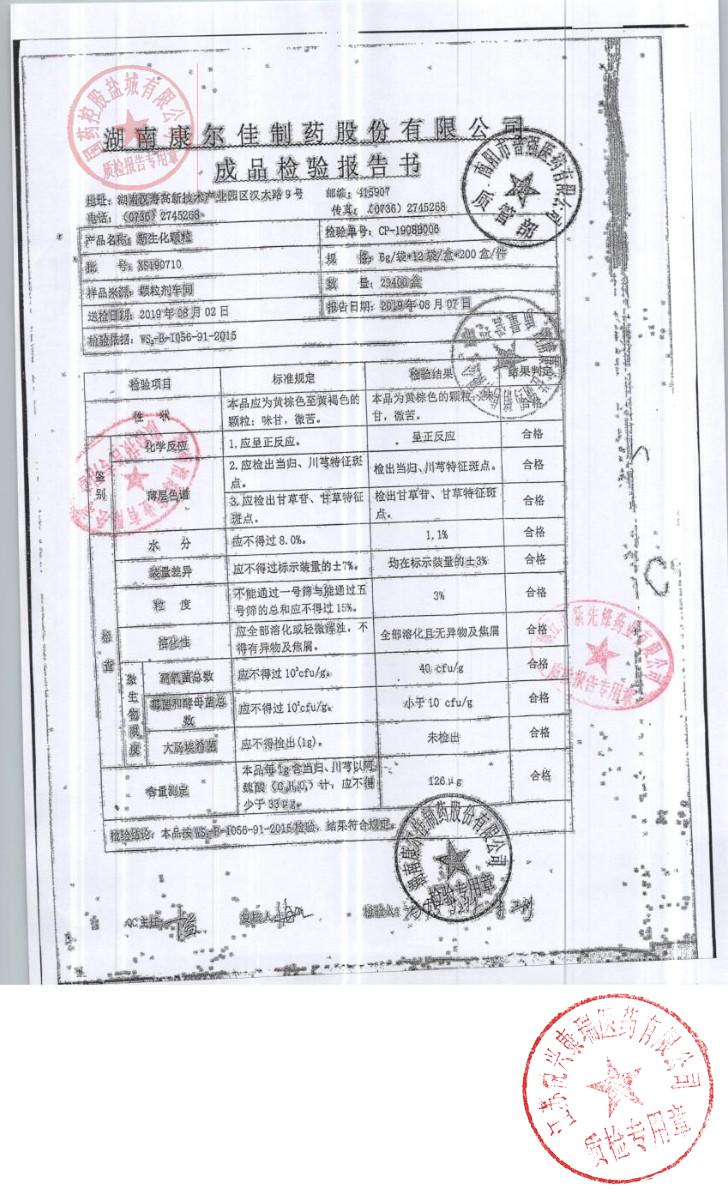 湖南康尔佳制药股份有限公司
成品检验报告书
地址：湖南汉寿高新技术产业园区汉太路9号 邮编：415907
电话：(0736) 2745268 传真：(0736) 2745268
产品名称：新生化颗粒 检验单号：CP-19083006
批 号：XS190710 规 格：6g/袋*12袋/盒*200盒/件
样品来源：颗粒剂车间 数 量：29400盒
送检日期：2019年08月02日 报告日期：2019年08月07日
检验依据：WS₃-B-1056-91-2015
检验项目 标准规定 检验结果 结果判定
性 状 本品应为黄棕色至黄褐色的颗粒；味甘，微苦。 本品为黄棕色的颗粒，甘，微苦。
鉴别 化学反应 1.应呈正反应。 呈正反应 合格
薄层色谱 2.应检出当归、川芎特征斑点。 检出当归、川芎特征斑点。 合格
3.应检出甘草苷、甘草特征斑点。 检出甘草苷、甘草特征斑点。 合格
检查 水 分 应不得过8.0%。 1.1% 合格
装量差异 应不得过标示装量的±7%。 均在标示装量的±3% 合格
粒 度 不能通过一号筛与能通过五号筛的总和应不得过15%。 3% 合格
溶化性 应全部溶化或轻微浑浊，不得有异物及焦屑。 全部溶化且无异物及焦屑 合格
微生物限度 需氧菌总数 应不得过10³cfu/g。 40 cfu/g 合格
霉菌和酵母菌总数 应不得过10²cfu/g。 小于10 cfu/g 合格
大肠埃希菌 应不得检出(1g)。 未检出 合格
含量测定 本品每1g含当归、川芎以阿魏酸（C₁₀H₁₀O₄）计，应不得少于33μg。 126μg 合格
检验结论：本品按WS₃-B-1056-91-2015检验，结果符合规定。
QC主任： 复核人： 检验人：
国药控股盐城有限公司
质检报告专用章
质管部
湖南康尔佳制药股份有限公司
检验专用章
质检报告专用章
江苏九兴康瑞医药有限公司
质检专用章